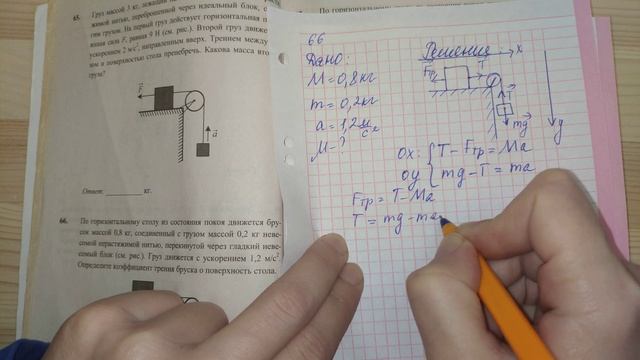 65.
Груз массой 3 кг, лежащий на
жимой нитью, переброшенной через идеальный блок, с
гим грузом. На первый груз действует горизонтальная п
янная сила F, равная 9 Н (см. рис.). Второй груз движе
ускорением 2 м/с², направленным вверх. Трением между
зом и поверхностью стола пренебречь. Какова масса вто
груза?
F
a
Ответ: кг.
66.
По горизонтальному столу из состояния покоя движется бру-
сок массой 0,8 кг, соединенный с грузом массой 0,2 кг неве-
сомой нерастяжимой нитью, перекинутой через гладкий неве-
сомый блок (см. рис.). Груз движется с ускорением 1,2 м/с².
Определите коэффициент трения бруска о поверхность стола.
По горизонтальном
66
Дано:
M = 0,8кг
m = 0,2кг
a = 1,2 м/с²
M - ?
Решение:
x
Fтр
T
T
mg
y
ox: T - Fтр = Ma
oy mg - T = ma
Fтр = T - Ma
T = mg - ma